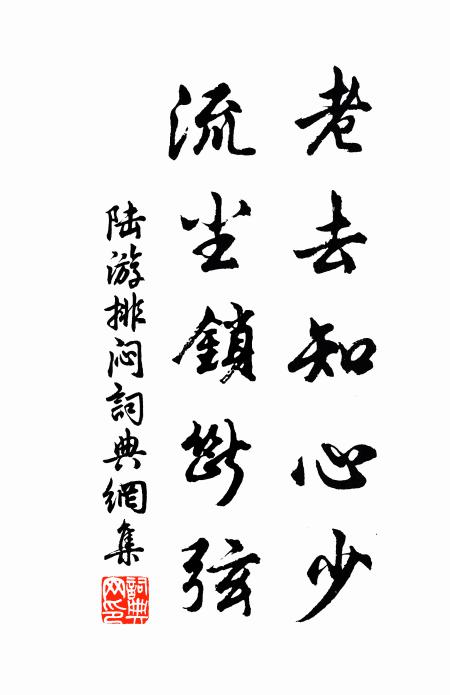 老去知心少
流尘鎖断弦
陆游排闷詞典網集
詞典网印